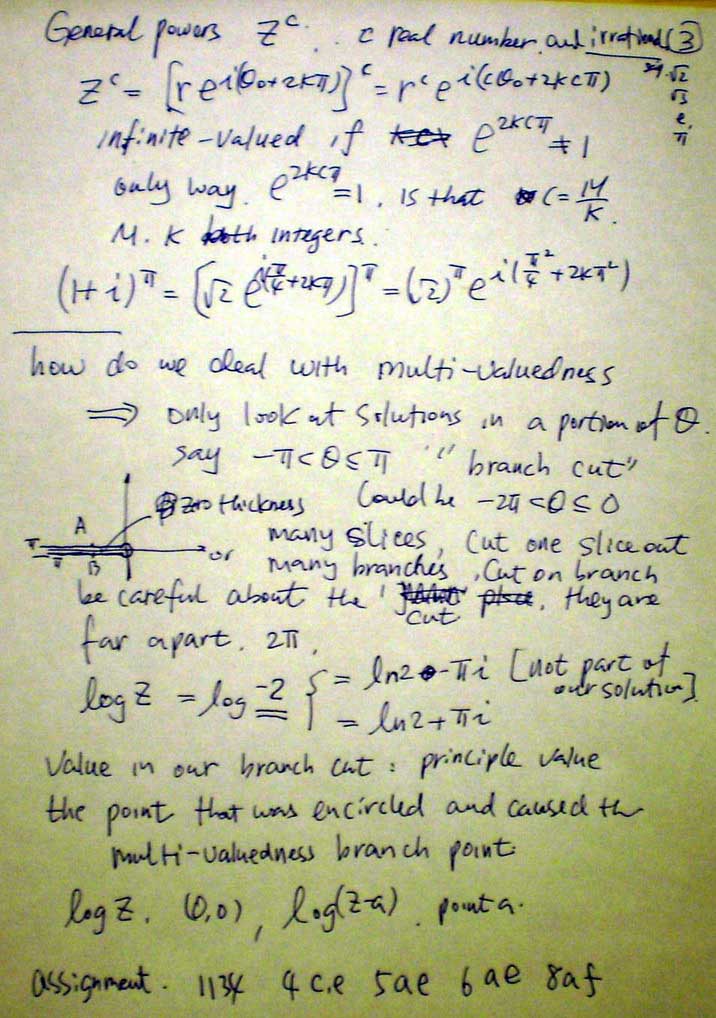 General powers z^c. c real number, and irrational (3)
√2
z^c = [r e^{i(θ₀+2kπ)}]^c = r^c e^{i(cθ₀+2kcπ)}
√3
e,
infinite-valued if e^{2kcπ} ≠ 1
π
only way. e^{2kcπ} = 1, is that c = M/K.
M. K both integers.
(1+i)^π = [√2 e^{i(π/4+2kπ)}]^π = (√2)^π e^{i(π²/4 + 2kπ²)}
how do we deal with multi-valuedness
⟹ only look at solutions in a portion of θ.
say -π < θ ≤ π "branch cut"
zero thickness Could be -2π < θ ≤ 0
A
π
π
B
or many slices, cut one slice out
many branches, cut on branch
be careful about the "cut, they are
far apart. 2π.
log z = log -2 { = ln2 - πi [not part of our solution]
= ln2 + πi
Value in our branch cut : principle value
the point that was encircled and caused the
multi-valuedness branch point.
log z. (0,0), log(z-a) point a.
assignment. 4 c.e 5ae 6ae 8af